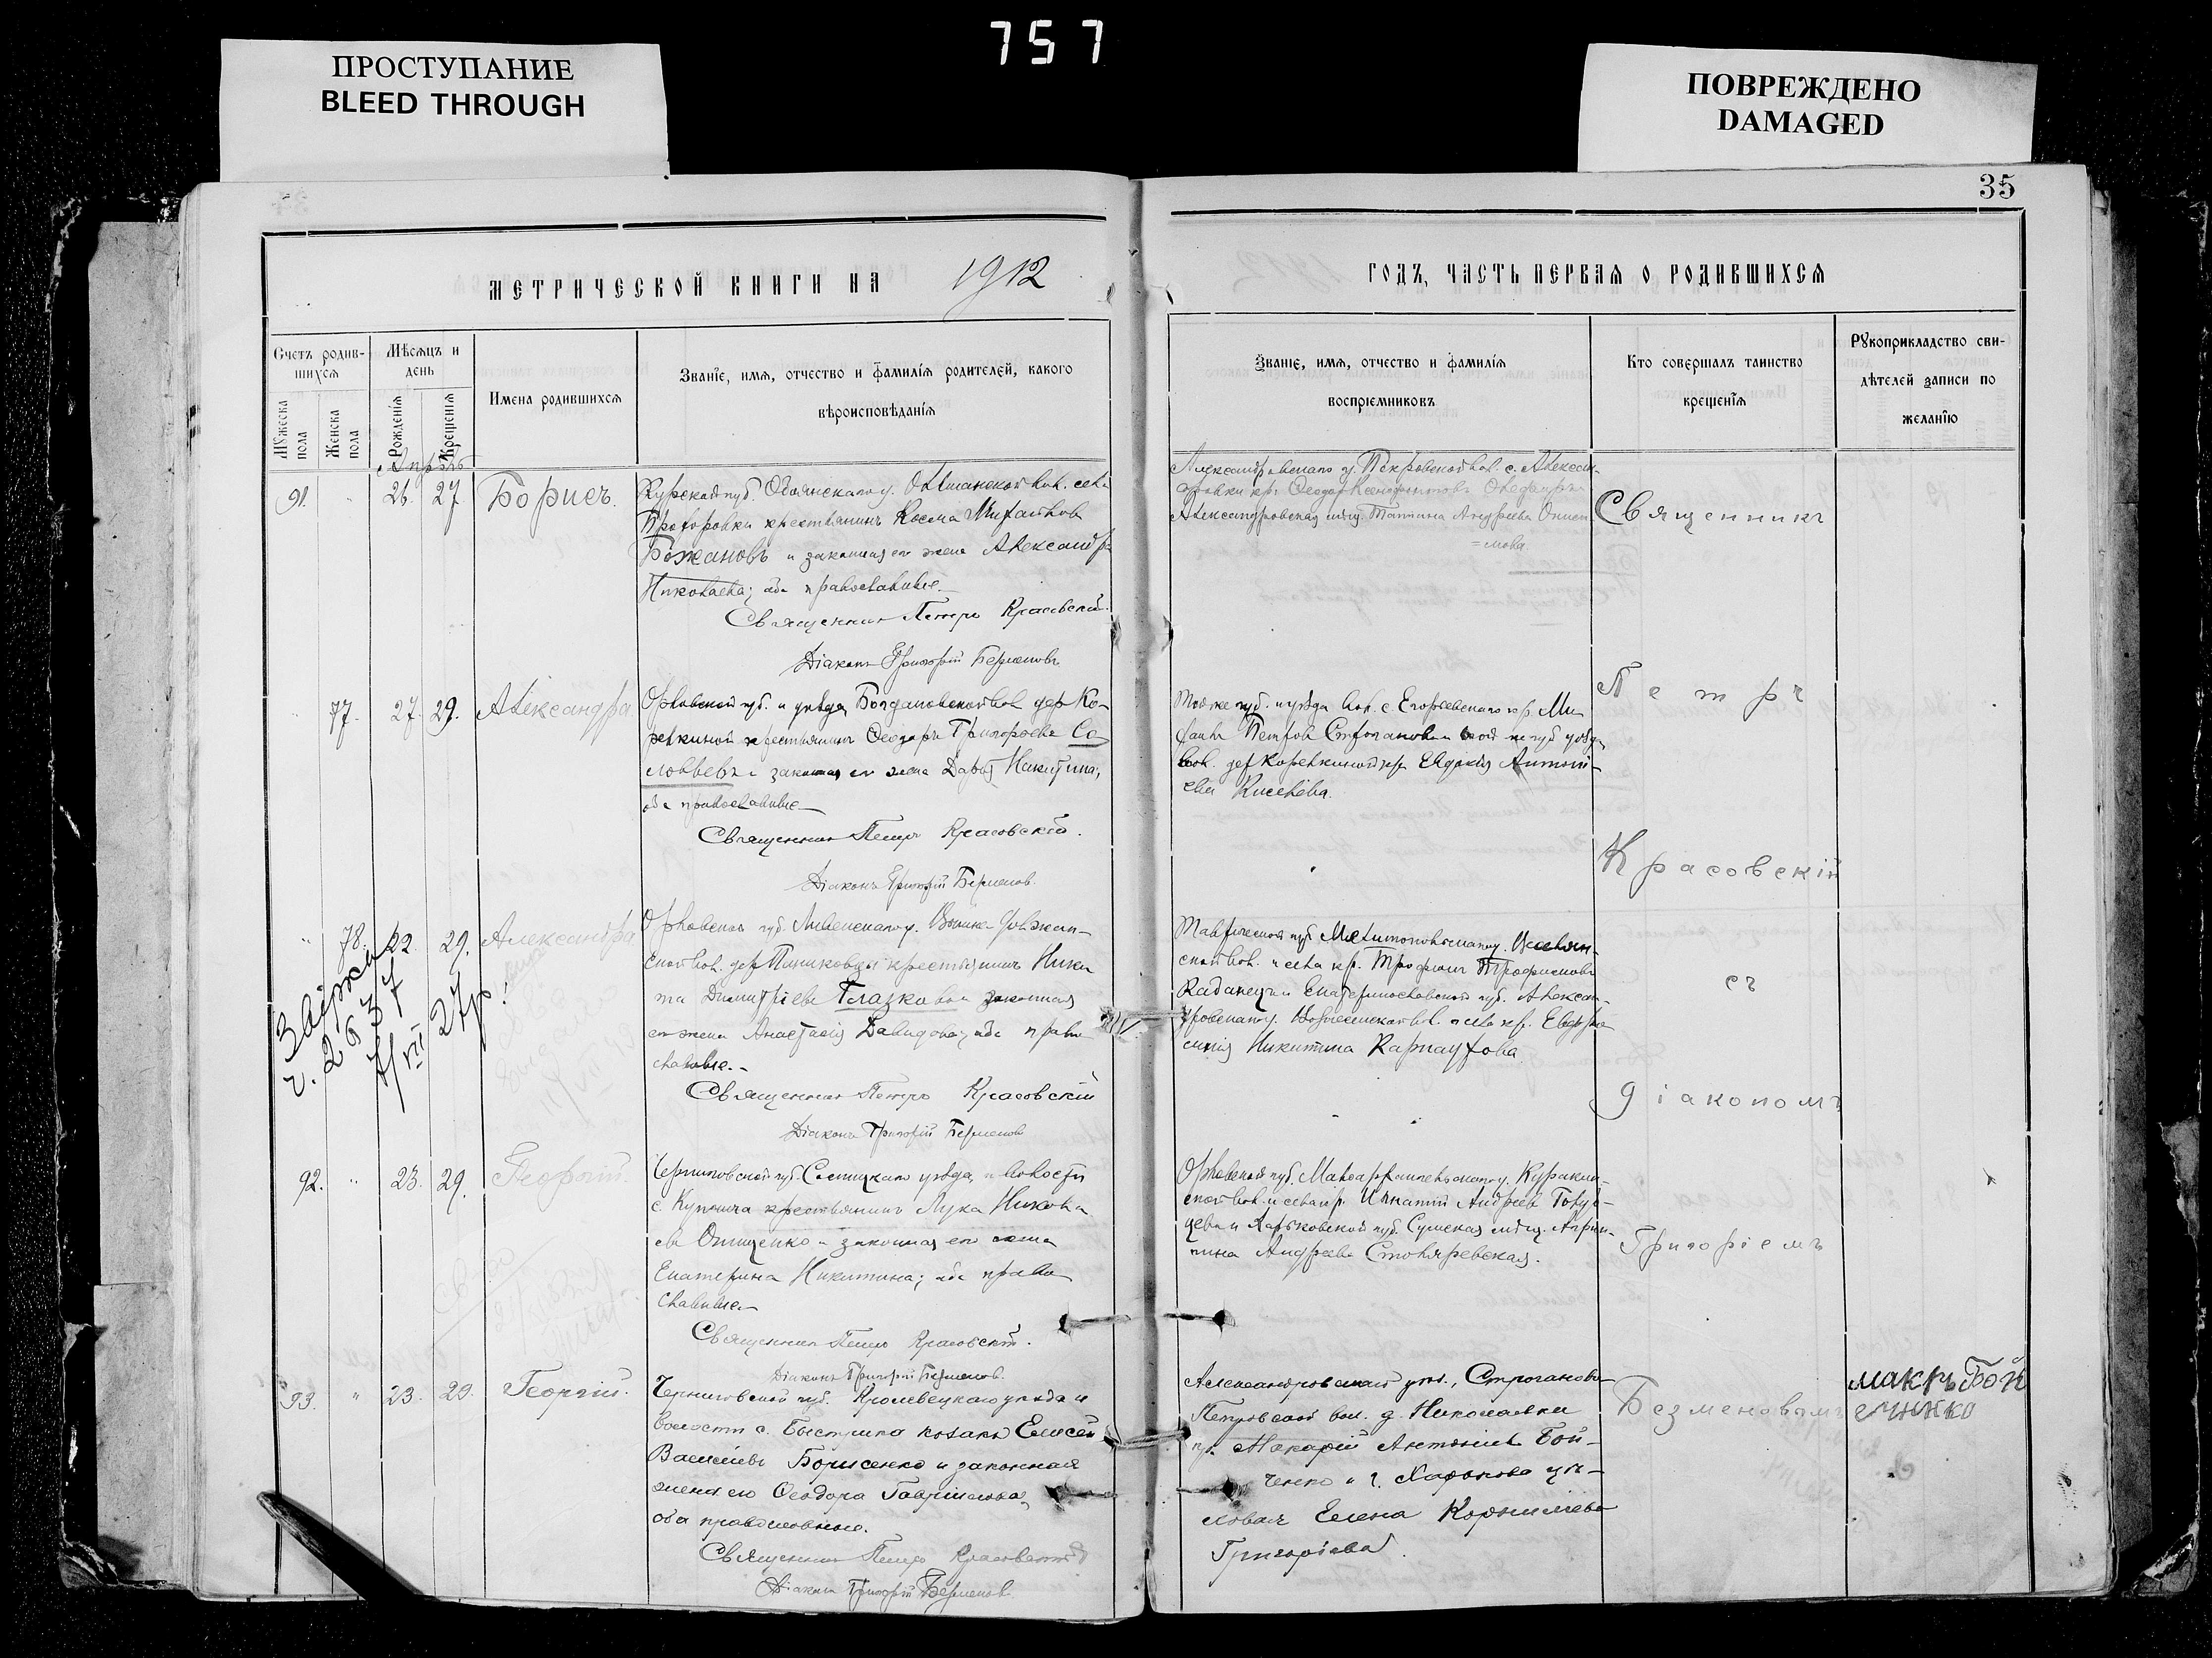 757
ПРОСТУПАНИЕ
BLEED THROUGH
ПОВРЕЖДЕНО
DAMAGED
35
МЕТРИЧЕСКОЙ КНИГИ НА 1912
ГОДЪ, ЧАСТЬ ПЕРВАЯ О РОДИВШИХСЯ
Счетъ родив-
шихся
Мѣсяцъ и
день
Имена родившихся
Званіе, имя, отчество и фамилія родителей, какого
вѣроисповѣданія
Мужеска
пола
Женска
пола
Рожденія
Крещенія
Званіе, имя, отчество и фамилія
воспріемниковъ
Кто совершалъ таинство
крещенія
Рукоприкладство сви-
дѣтелей записи по
желанію
Апрѣль
91. " 26. 27. Борисъ.
Курской губ. Обоянскаго у. вол. села
Прохоровки крестьянинъ Косма Михайловъ
Божановъ и законная его жена Александра
Николаева; оба православные.
Священникъ Петръ Красовскій.
Діаконъ Григорій Безменовъ.
Александровскаго у. Покровской вол. с. Алексан-
дровки кр. Ѳеодоръ
Александровская мѣщ. Татіана Андреева
77. 27. 29. Александра
Орловской губ. и уѣзда Богдановской вол. дер. Ко-
ревкиной крестьянинъ Ѳеодоръ Григорьевъ Со-
ловьевъ и законная его жена Дарія Никитина;
оба православные.
Священникъ Петръ Красовскій.
Діаконъ Григорій Безменовъ.
Той же губ. и уѣзда вол. с. Егорьевскаго кр. Ми-
хаилъ Петровъ и той же губ. уѣзда
вол. дер. Коревкиной кр. Евдокія Антонь-
ева Киселева.
" 78. 22. 29. Александра
Орловской губ. Ливенскаго у. должан-
ской вол. дер. крестьянинъ Ники-
та Димитріевъ Глазковъ и законная
его жена Анастасія Давидова; оба право-
славные.
Священникъ Петръ Красовскій
Діаконъ Григорій Безменовъ
Таврической губ. Мелитопольскаго у.
ской вол. и села кр. Трофимъ Трофимовъ
и Екатеринославской губ. Алексан-
дровскаго у. Вознесенской вол. и села кр. Евфро-
синія Никитина Карнаухова.
ч. 2637
92. " 23. 29. Георгій.
Черниговской губ. Сосницкаго уѣзда, и волости
с. крестьянинъ Лука Никола-
евъ Онищенко и законная его жена
Екатерина Никитина; оба право-
славные.
Священникъ Петръ Красовскій.
Діаконъ Григорій Безменовъ.
Орловской губ. Малоархангельскаго у. Куракин-
ской вол. и села кр. Игнатій Андреевъ
и Харьковской губ. Сумская мѣщ. Агрип-
пина Андреева Столяревская.
93. " 23. 29. Георгій.
Черниговской губ. Кролевецкаго уѣзда и
волости с. Быстрика козакъ Елисей
Васильевъ Борисенко и законная
жена его Ѳеодора Гаврилова,
оба православные.
Священникъ Петръ Красовскій
Діаконъ Григорій Безменовъ
Александровскаго уѣз., Строганово-
Петровской вол. д. Николаевки
кр. Макарій Антоніевъ Бой-
ченко и г. Харькова цѣ-
ховая Елена Корниліева
Григорьева.
Священникъ
Петръ
Красовскій
съ
діакономъ
Григоріемъ
Безменовымъ
макръ Бой
ечнко